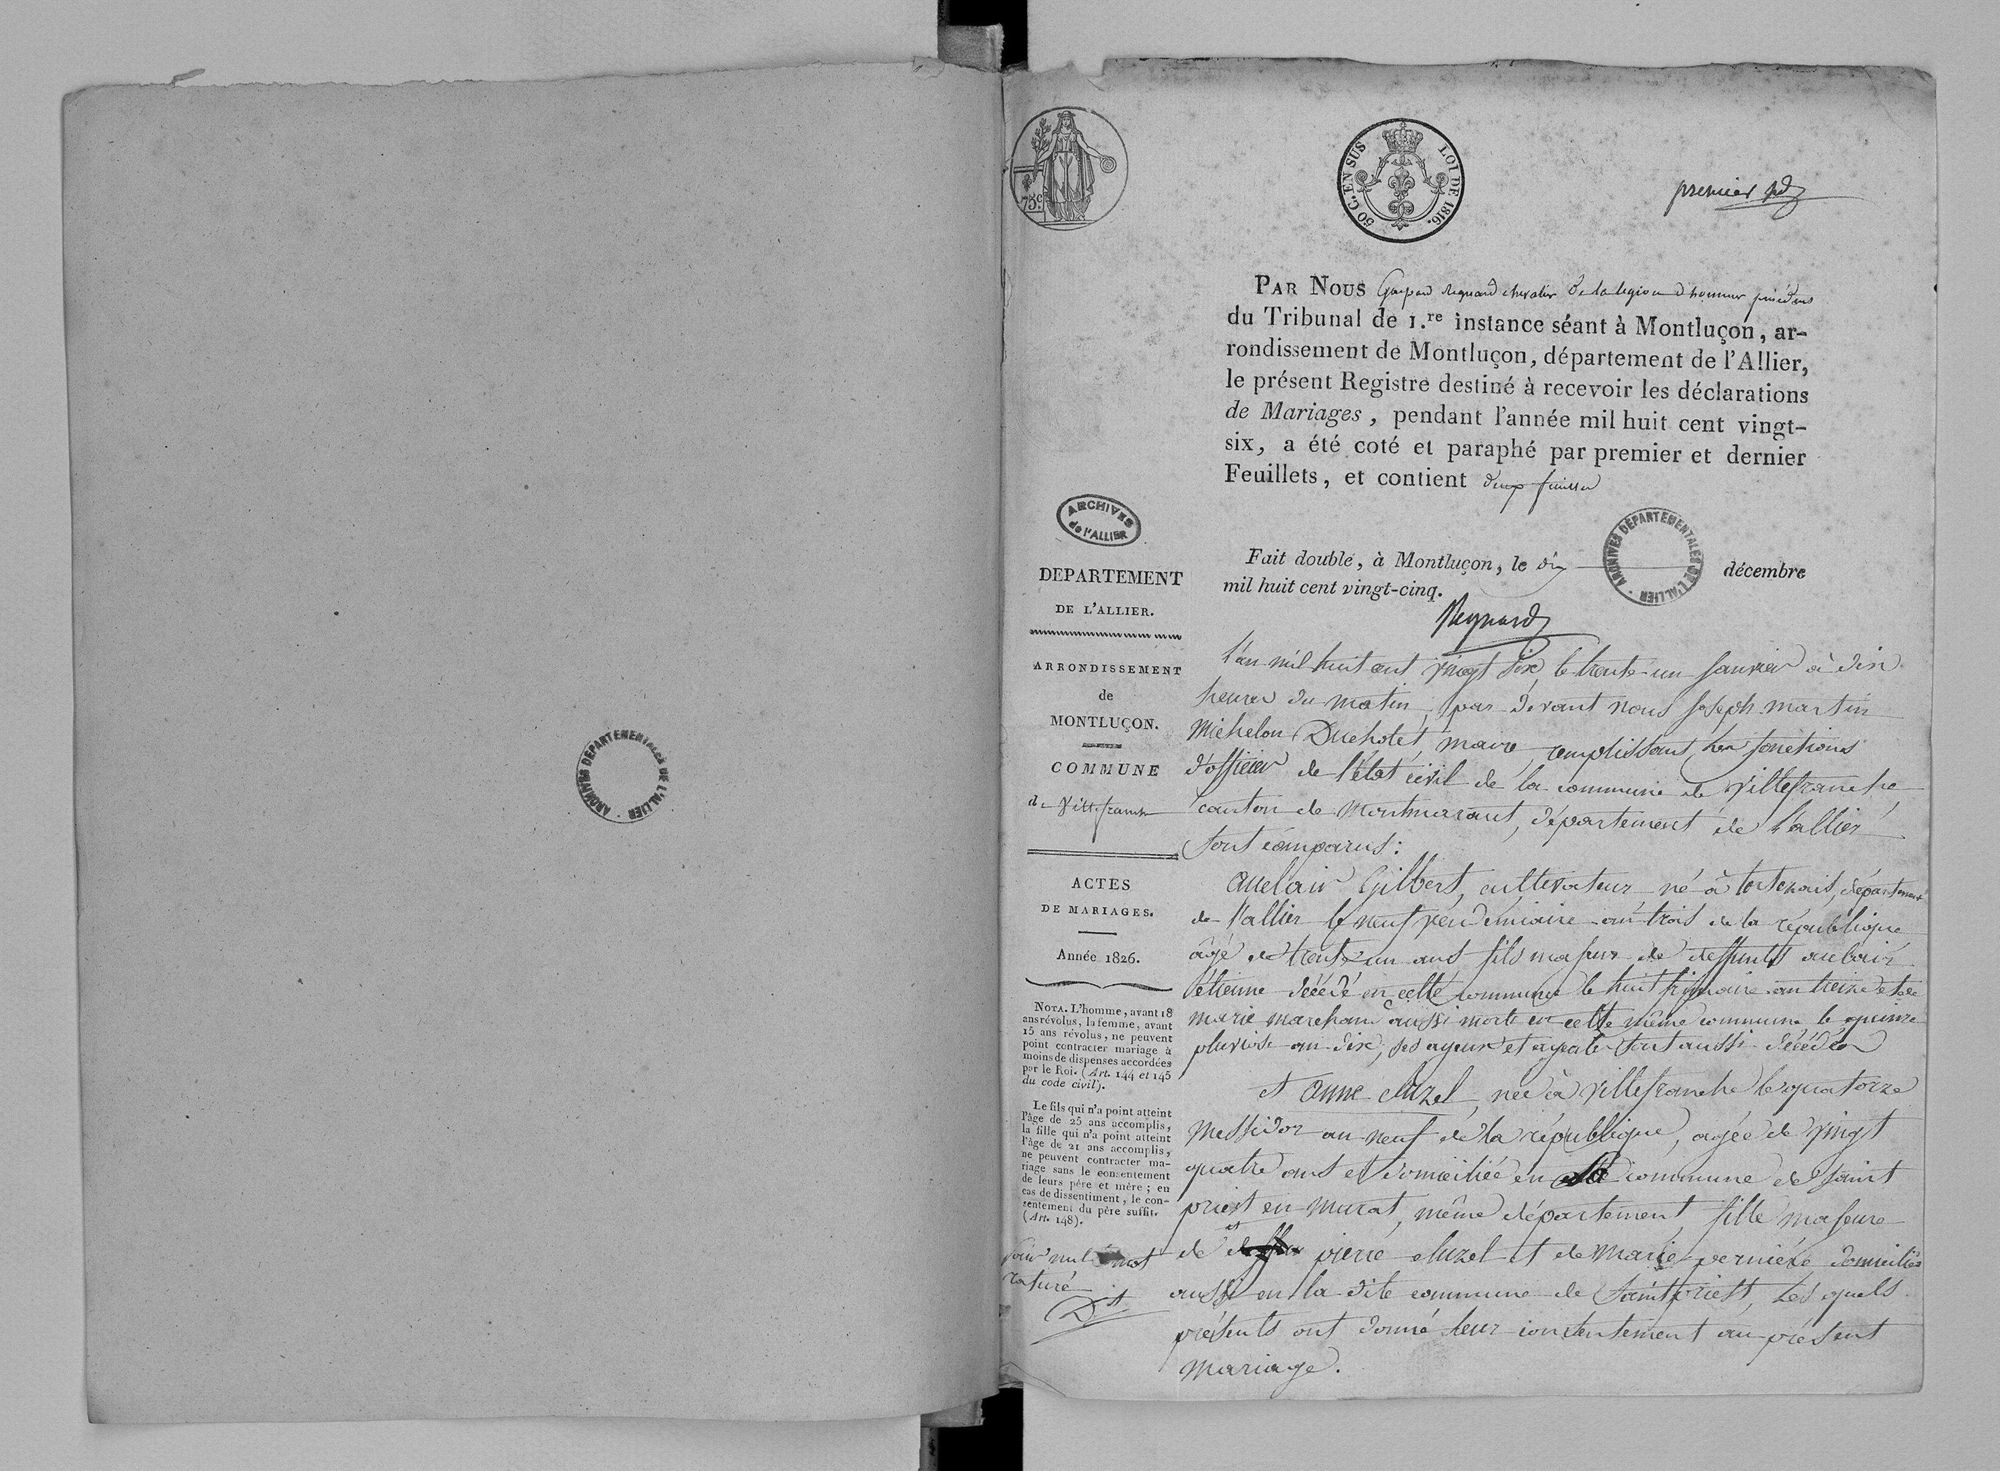 ARCHIVES DÉPARTEMENTALES DE L'ALLIER
75 c.
50 C. EN SUS LOI DE 1816.
premier
PAR NOUS Gaspard Regnard chevalier de la legion d'honneur président
du Tribunal de 1.re instance séant à Montluçon, ar-
rondissement de Montluçon, département de l'Allier,
le présent Registre destiné à recevoir les déclarations
de Mariages, pendant l'année mil huit cent vingt-
six, a été coté et paraphé par premier et dernier
Feuillets, et contient
Fait double, à Montluçon, le dix décembre
mil huit cent vingt-cinq.
ARCHIVES DÉPARTEMENTALES DE L'ALLIER
Regnard
ARCHIVES
de l'ALLIER
DEPARTEMENT
DE L'ALLIER.
ARRONDISSEMENT
de
MONTLUÇON.
COMMUNE
de Villefranche
ACTES
DE MARIAGES.
Année 1826.
NOTA. L'homme, avant 18
ans révolus, la femme, avant
15 ans révolus, ne peuvent
point contracter mariage à
moins de dispenses accordées
par le Roi. (Art. 144 et 145
du code civil).
Le fils qui n'a point atteint
l'âge de 25 ans accomplis,
la fille qui n'a point atteint
l'âge de 21 ans accomplis,
ne peuvent contracter ma-
riage sans le consentement
de leurs père et mère ; en
cas de dissentiment, le con-
sentement du père suffit.
(Art. 148).
mot
raturé
L'an mil huit cent vingt six, le trente un janvier à dix
heures du matin, par devant nous joseph martin
Michelon Ducholet, maire, remplissant les fonctions
d'officier de l'état civil de la commune de Villefranche
canton de Montmarault, département de l'allier
sont comparus :
auclair Gilbert, cultivateur né à tortezais, département
de l'allier le neuf vendemiaire an trois de la république
âgé de trente un ans fils majeur de deffunts auclair
étienne décédé en cette commune le huit frimaire an treize et de
marie marchand aussi morte en cette même commune le quinze
pluviose an dix, ses ayeux et ayeules sont aussi décédés
et anne cluzel, née à villefranche le quatorze
messidor an neuf de la république, agée de vingt
quatre ans et domiciliée en la commune de saint
priest en murat, même département, fille majeure
de pierre cluzel et de marie domiciliés
aussi en la dite commune de saint priest, les quels
présents ont donné leur consentement au présent
mariage.